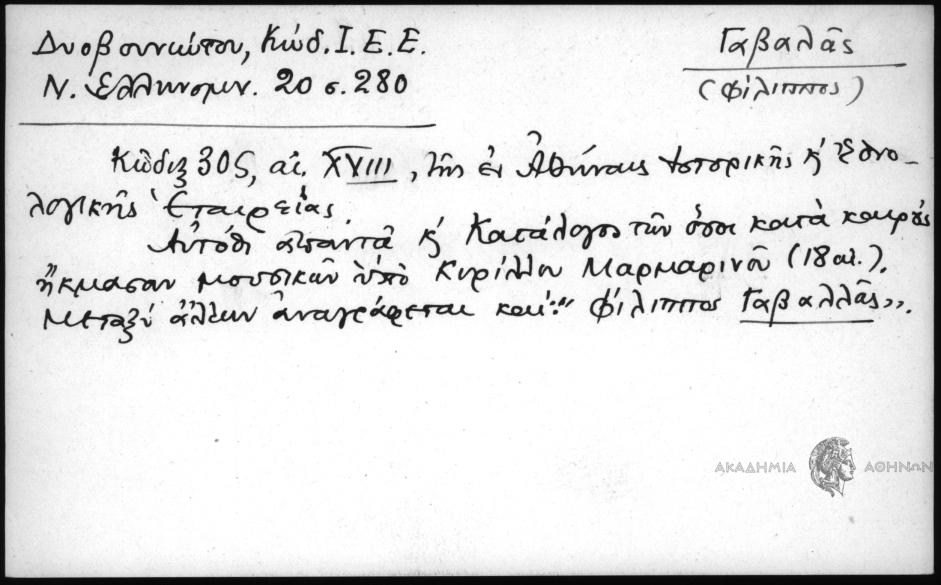 Δυοβουνιώτου, Κώδ. Ι. Ε. Ε.
Ν. Ελληνομν. 20 σ. 280
Γαβαλᾶς
(Φίλιππος)
Κῶδιξ 305, αἰ. XVIII, τῆς ἐν Ἀθήναις Ἱστορικῆς κ̓ Ἐθνο-
λογικῆς Ἑταιρείας.
Αὐτόθι ἀπαντᾶ κ̓ Κατάλογος τῶν ὅσοι κατὰ καιροὺς
ἤκμασαν μουσικῶν ὑπὸ Κυρίλλου Μαρμαρινοῦ (18 αἰ.).
Μεταξὺ ἄλλων ἀναγράφεται καί: "Φίλιππος Γαβαλλᾶς".
ΑΚΑΔΗΜΙΑ ΑΘΗΝΩΝ